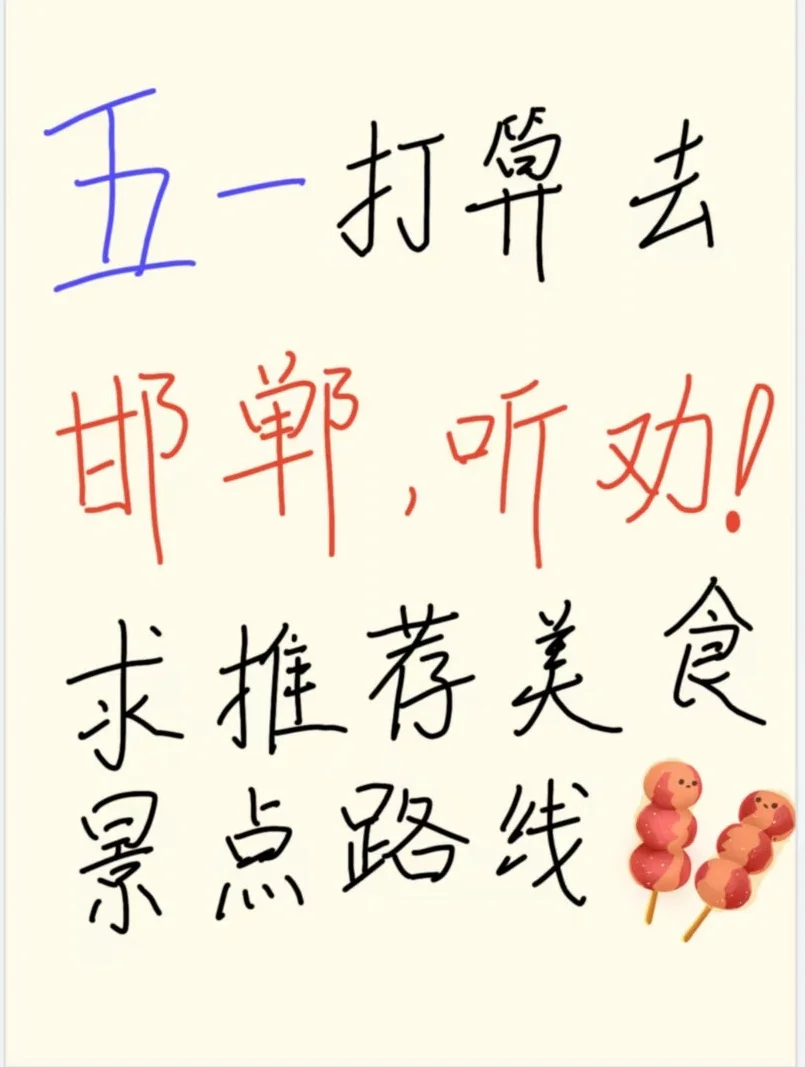 五一打算去
邯郸,听劝!
求推荐美食
景点路线